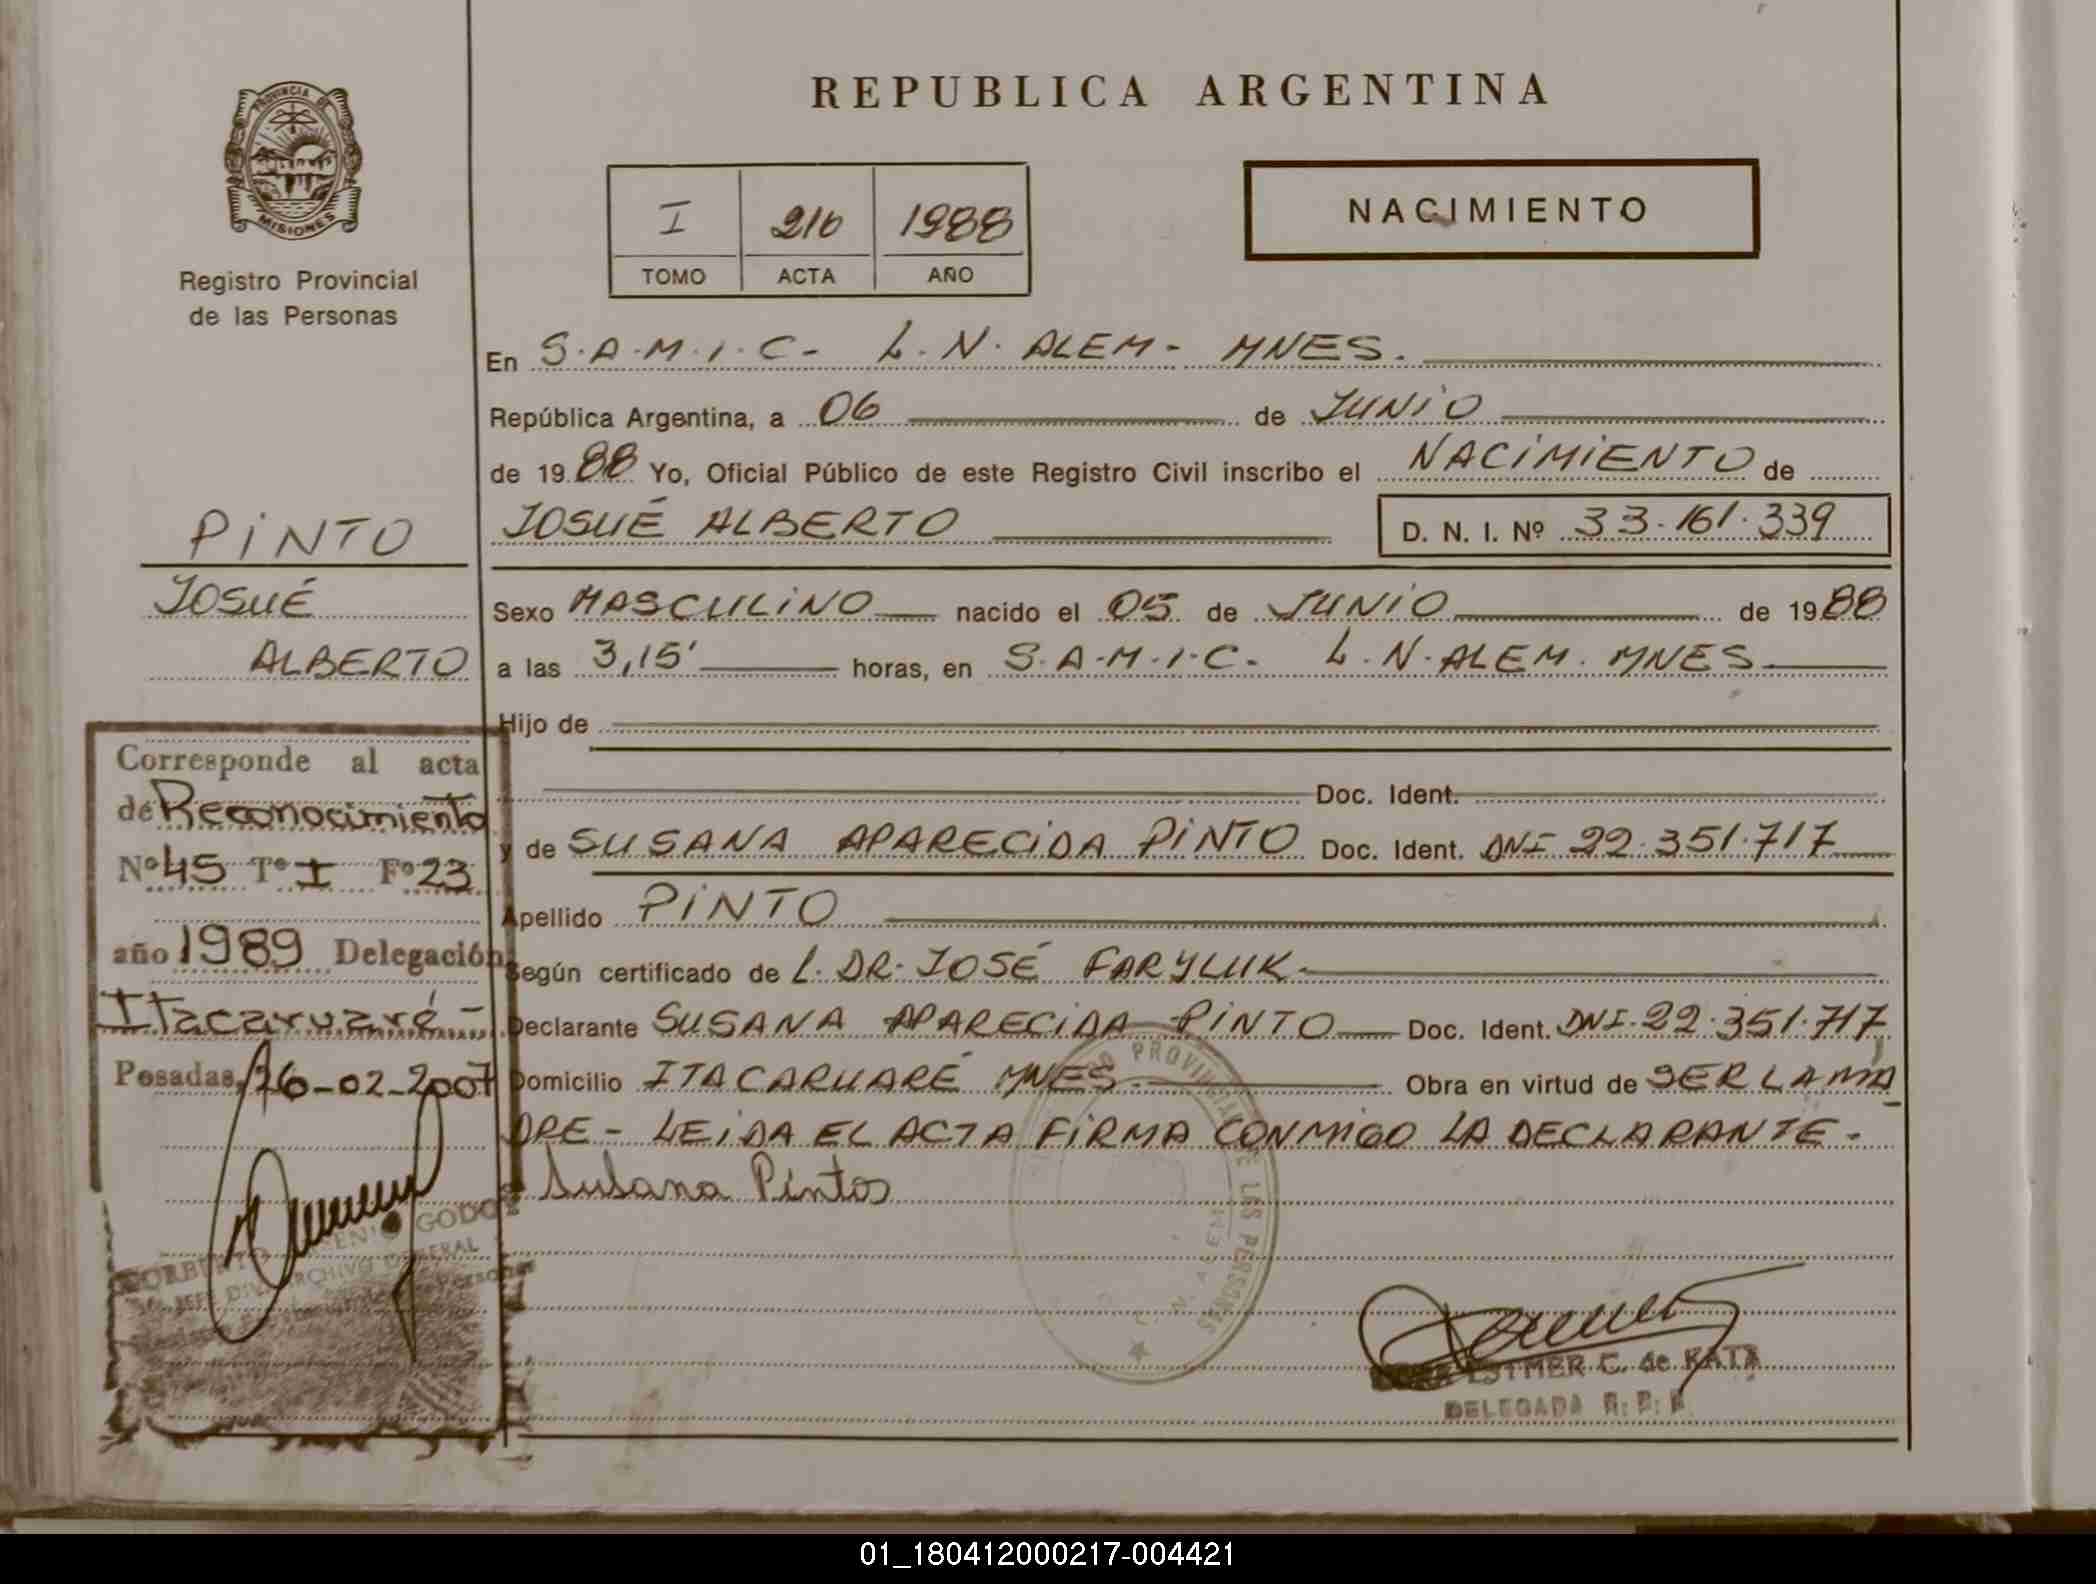 REPUBLICA ARGENTINA
PROVINCIA DE
MISIONES
Registro Provincial
de las Personas
I 216 1988
TOMO ACTA AÑO
NACIMIENTO
En S.A.M.I.C- L.N. ALEM- MNES.
República Argentina, a 06 de JUNIO
de 1988 Yo, Oficial Público de este Registro Civil inscribo el NACIMIENTO de
JOSUÉ ALBERTO D. N. I. Nº 33.161.339
PINTO
JOSUÉ
ALBERTO
Sexo MASCULINO nacido el 05 de JUNIO de 1988
a las 3,15' horas, en S.A.M.I.C. L.N. ALEM. MNES
Hijo de
Doc. Ident.
y de SUSANA APARECIDA PINTO Doc. Ident. DNI 22.351.717
Apellido PINTO
Según certificado de L. DR. JOSÉ FARYLUK
Declarante SUSANA APARECIDA PINTO Doc. Ident. DNI.22.351.717
Domicilio ITACARUARÉ MNES Obra en virtud de SER LA MA
DRE- LEIDA EL ACTA FIRMA CONMIGO LA DECLARANTE-
Susana Pintos
Corresponde al acta
de Reconocimiento
Nº 45 Tº I Fº 23
año 1989 Delegación
Itacaruaré-
Posadas, 26-02-2007
GODOY
DIV. ARCHIVO GENERAL
Personas
PROVINCIAL DE LAS PERSONAS
L. N. ALEM
ESTHER C. de KATZ
DELEGADA R. P. P.
01_180412000217-004421